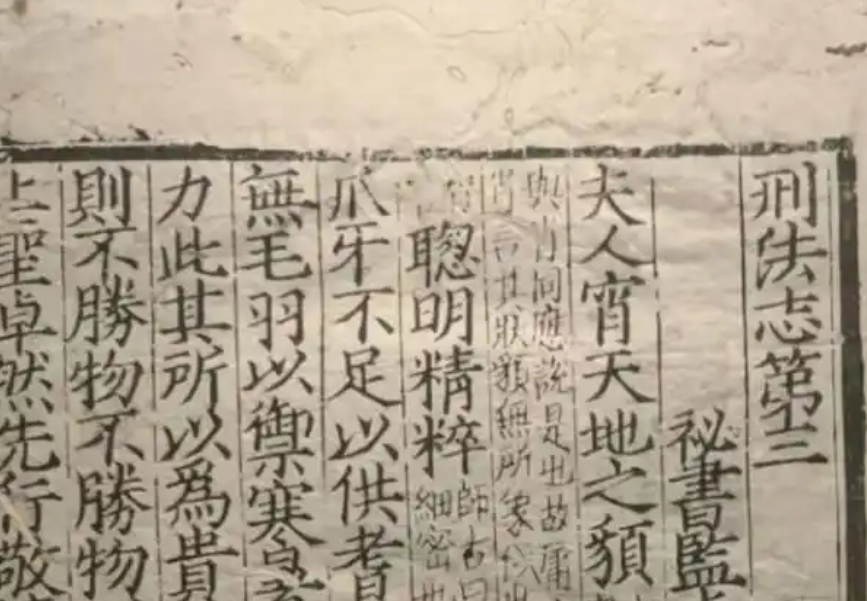 刑法志第三
祕書監
夫人宵天地之䫉
與宵同應說是也故庸
宵言其狀䫉無所象似
聰明精粹
師古曰
細密也
爪牙不足以供耆
無毛羽以禦寒暑
力此其所以爲貴
則不勝物不勝物
上聖卓然先行敬